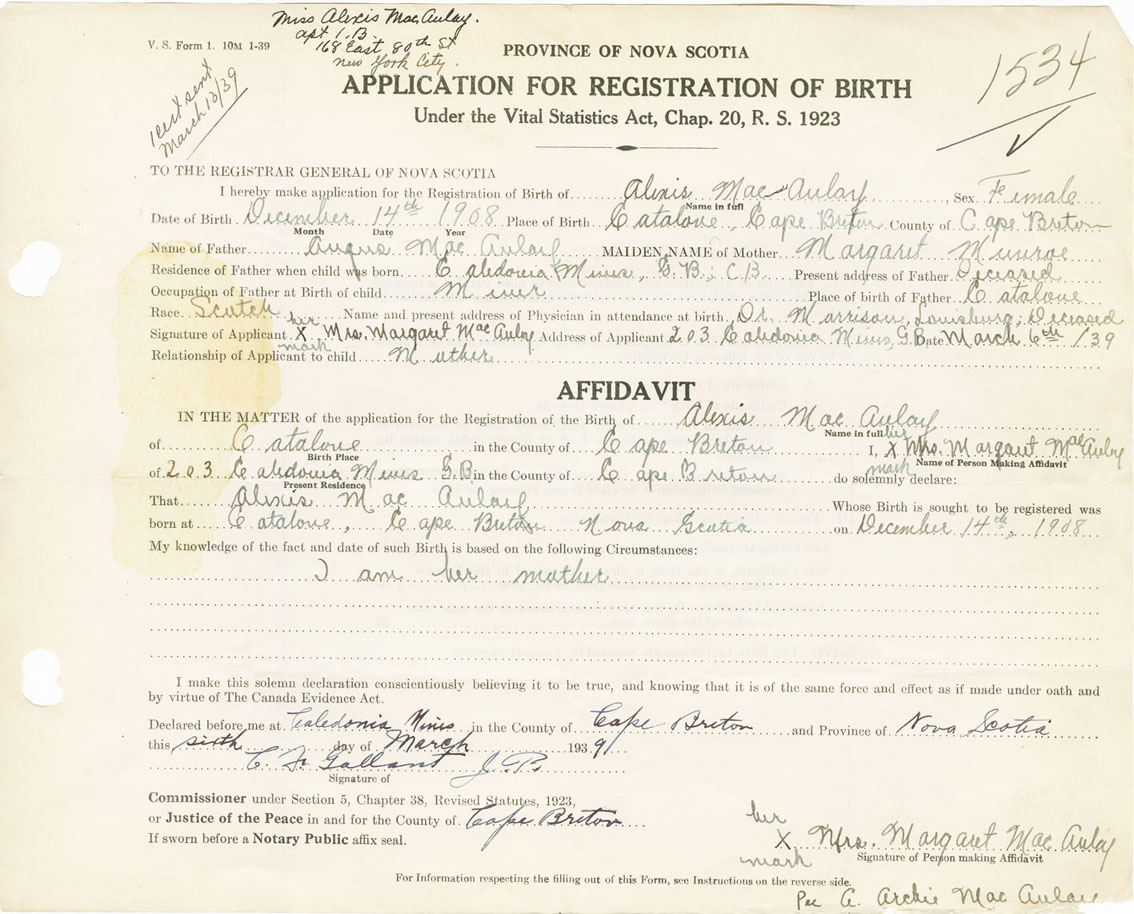 Miss Alexis MacAulay.
apt 1.B
168 East 80th St
New York City.
V. S. Form 1. 10M 1-39
PROVINCE OF NOVA SCOTIA
1534
cert sent
March 13/39
APPLICATION FOR REGISTRATION OF BIRTH
Under the Vital Statistics Act, Chap. 20, R. S. 1923
TO THE REGISTRAR GENERAL OF NOVA SCOTIA
I hereby make application for the Registration of Birth of Alexis Mac Aulay, Sex Female
Name in full
Date of Birth December 14th 1908 Place of Birth Catalone, Cape Breton County of Cape Breton
Month Date Year
Name of Father Angus Mac Aulay MAIDEN NAME of Mother Margaret Munroe
Residence of Father when child was born Caledonia Mines, G.B., C.B. Present address of Father Deceased
Occupation of Father at Birth of child Miner Place of birth of Father Catalone
Race Scotch Name and present address of Physician in attendance at birth Dr. Morrison, Louisburg, Deceased
her
Signature of Applicant X Mrs. Margaret MacAulay Address of Applicant 203 Caledonia Mines, G.B Date March 6th /39
mark
Relationship of Applicant to child Muther
AFFIDAVIT
IN THE MATTER of the application for the Registration of the Birth of Alexis Mac Aulay
Name in full her
of Catalone in the County of Cape Breton I, X Mrs. Margaret MacAulay
Birth Place mark Name of Person Making Affidavit
of 203 Caledonia Mines G.B in the County of Cape Breton do solemnly declare:
Present Residence
That Alexis Mac Aulay Whose Birth is sought to be registered was
born at Catalone, Cape Breton Nova Scotia on December 14th, 1908
My knowledge of the fact and date of such Birth is based on the following Circumstances:
I am her mother
I make this solemn declaration conscientiously believing it to be true, and knowing that it is of the same force and effect as if made under oath and
by virtue of The Canada Evidence Act.
Declared before me at Caledonia Mines in the County of Cape Breton and Province of Nova Scotia
this sixth day of March 1939
C. F. Gallant J.P.
Signature of
Commissioner under Section 5, Chapter 38, Revised Statutes, 1923,
or Justice of the Peace in and for the County of Cape Breton
If sworn before a Notary Public affix seal.
her
X Mrs. Margaret Mac Aulay
mark Signature of Person making Affidavit
For Information respecting the filling out of this Form, see Instructions on the reverse side.
Per A. Archie Mac Aulay